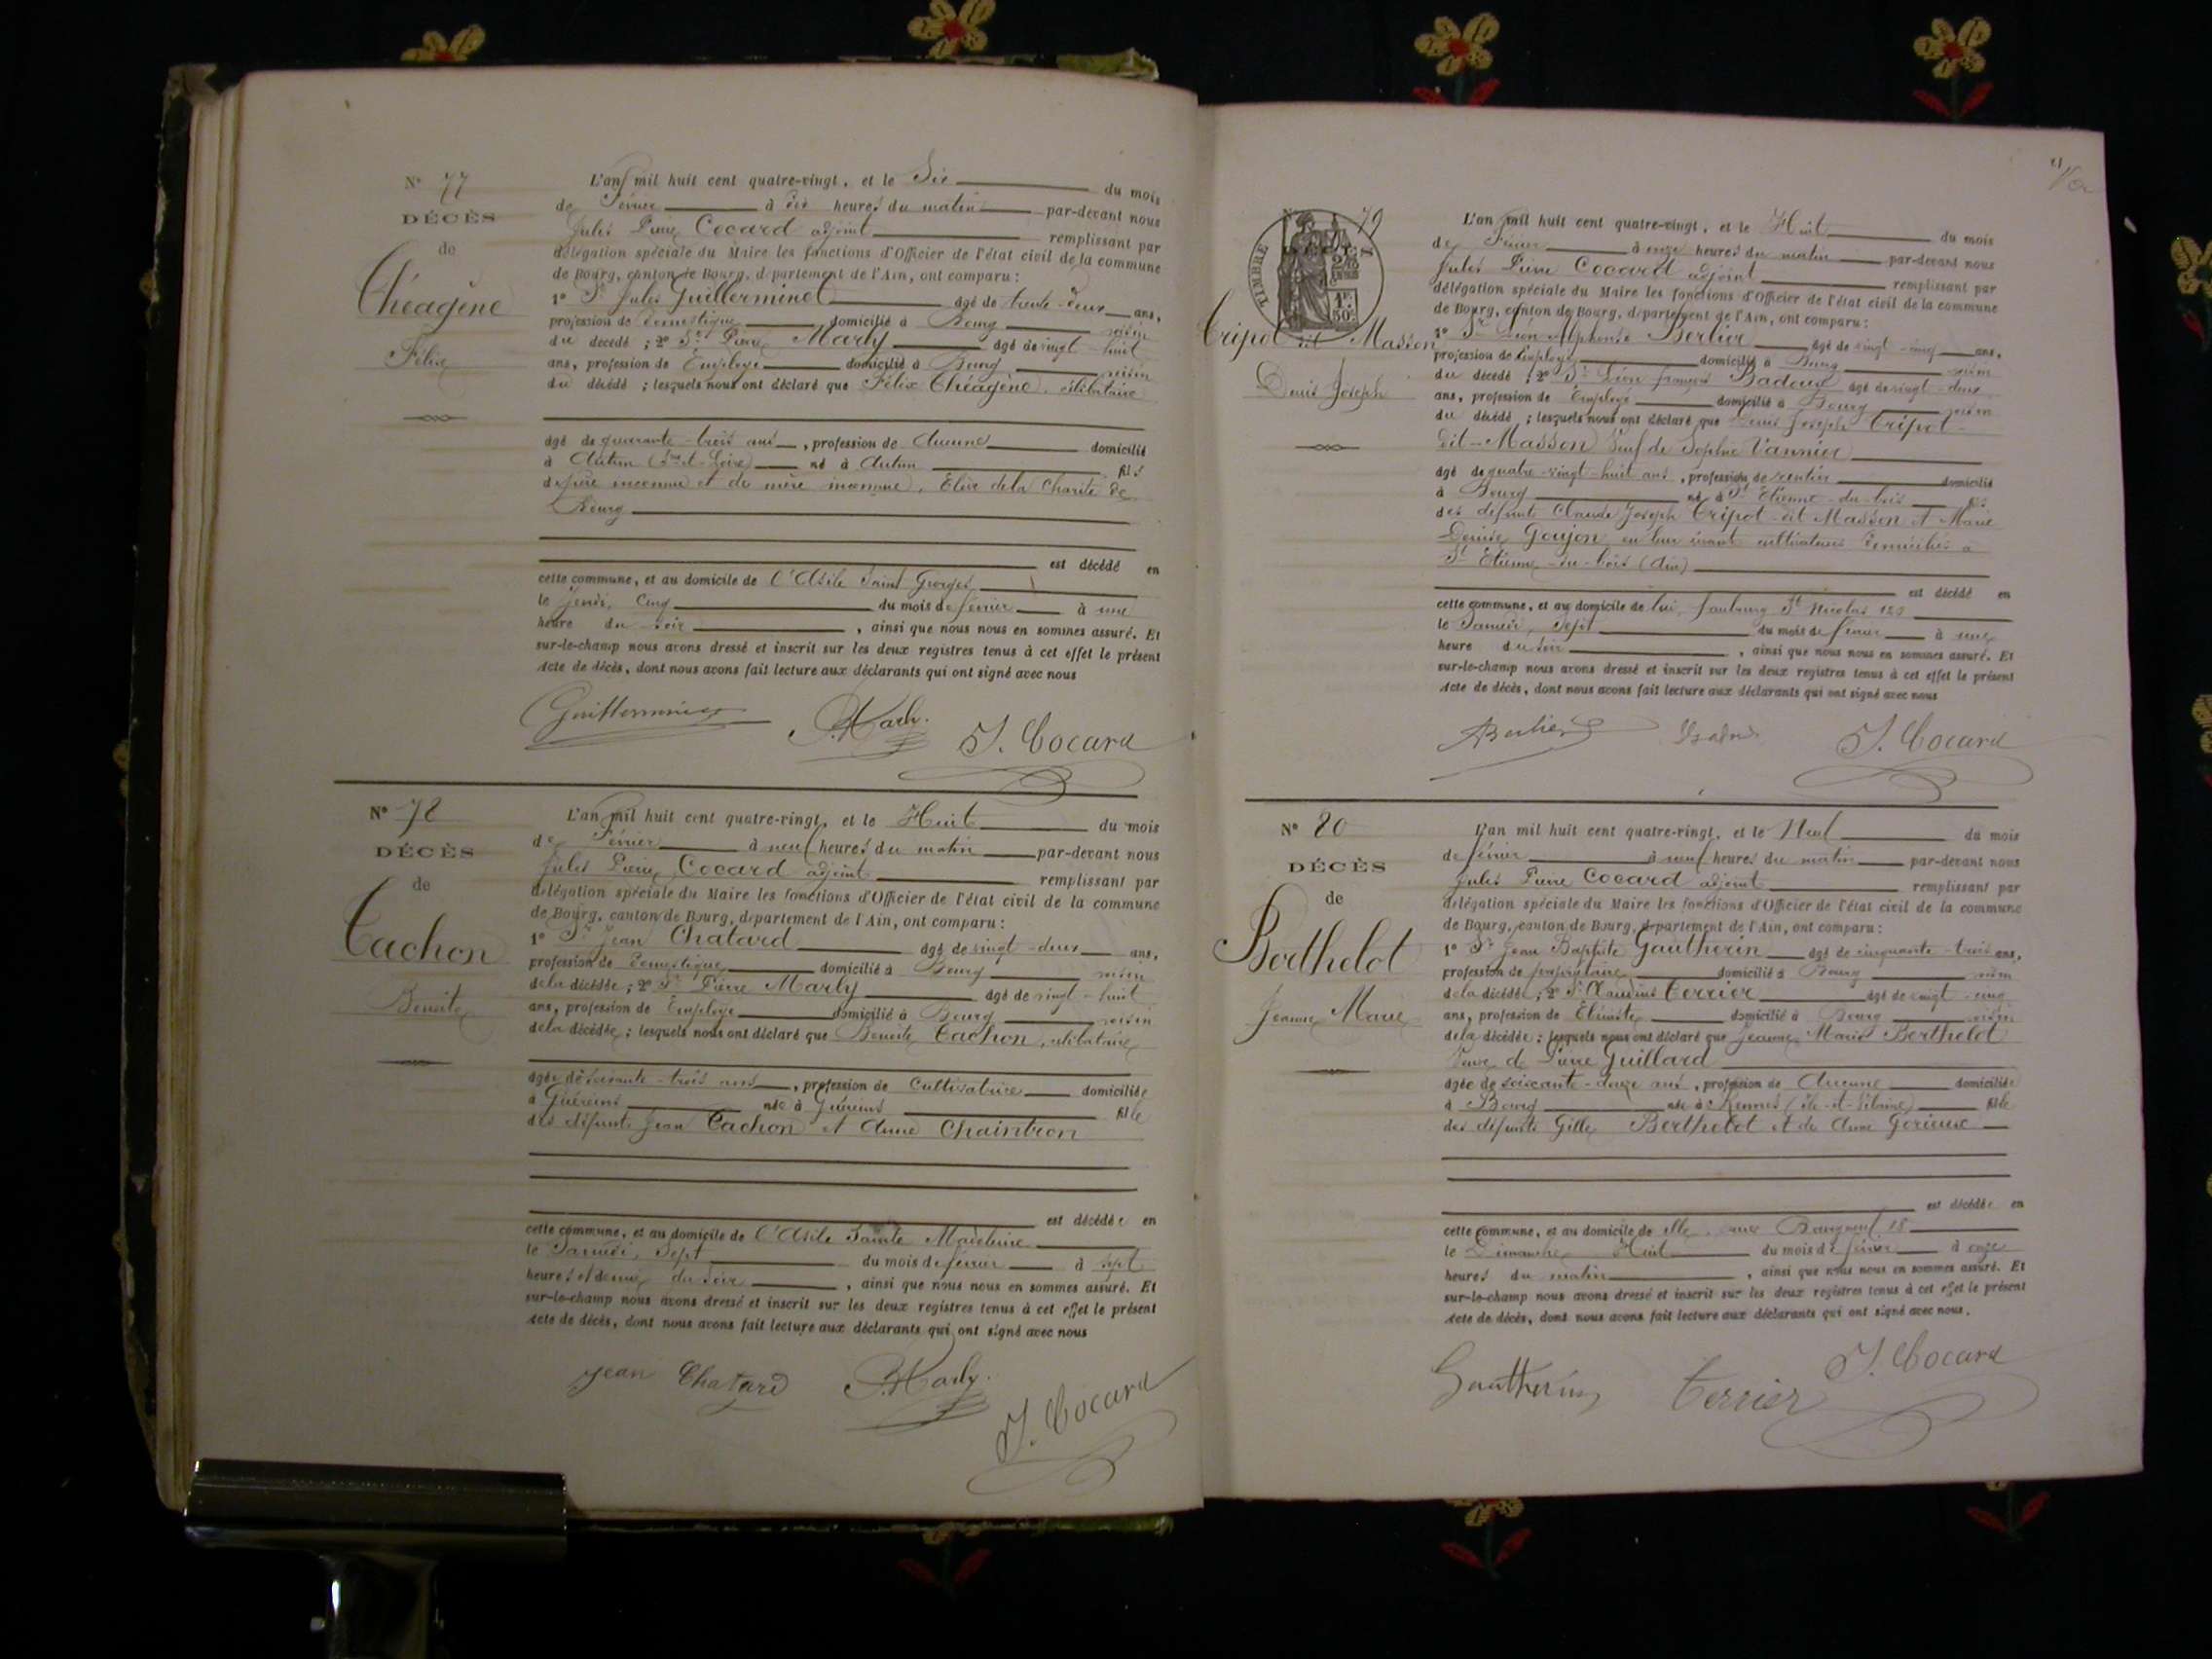 N° 77
DÉCÈS
de
Théagène
Félix
L'an mil huit cent quatre-vingt, et le Six du mois
de Février à dix heures du matin par-devant nous
Jules Pierre Cocard adjoint remplissant par
délégation spéciale du Maire les fonctions d'Officier de l'état civil de la commune
de Bourg, canton de Bourg, département de l'Ain, ont comparu :
1° Sr Jules Guillerminet âgé de trente-deux ans,
profession de Domestique domicilié à Bourg voisin
du décédé ; 2° Sr Pierre Marly âgé de vingt-huit
ans, profession de Employé domicilié à Bourg voisin
du décédé ; lesquels nous ont déclaré que Félix Théagène, célibataire
âgé de quarante-trois ans, profession de Aucune domicilié
à Autun (Sne-et-Loire) né à Autun fils
de père inconnu et de mère inconnue, Elève de la Charité de
Bourg
est décédé en
cette commune, et au domicile de l'Asile Saint Georges
le Jeudi, Cinq du mois de février à une
heure du soir, ainsi que nous nous en sommes assuré. Et
sur-le-champ nous avons dressé et inscrit sur les deux registres tenus à cet effet le présent
Acte de décès, dont nous avons fait lecture aux déclarants qui ont signé avec nous
Guillerminet P. Marly. J. Cocard
N° 78
DÉCÈS
de
Tachon
Benoite
L'an mil huit cent quatre-vingt, et le Huit du mois
de Février à neuf heures du matin par-devant nous
Jules Pierre Cocard adjoint remplissant par
délégation spéciale du Maire les fonctions d'Officier de l'état civil de la commune
de Bourg, canton de Bourg, département de l'Ain, ont comparu :
1° Sr Jean Chatard âgé de vingt-deux ans,
profession de Domestique domicilié à Bourg voisin
de la décédée ; 2° Sr Pierre Marly âgé de vingt-huit
ans, profession de Employé domicilié à Bourg voisin
de la décédée ; lesquels nous ont déclaré que Benoite Tachon, célibataire
âgée de soixante-trois ans, profession de Cultivatrice domiciliée
à Guéreins née à Guéreins fille
des défunts Jean Tachon et Anne Chaintron
est décédée en
cette commune, et au domicile de l'Asile Sainte Madeleine
le Samedi, Sept du mois de février à sept
heures et demie du soir, ainsi que nous nous en sommes assuré. Et
sur-le-champ nous avons dressé et inscrit sur les deux registres tenus à cet effet le présent
Acte de décès, dont nous avons fait lecture aux déclarants qui ont signé avec nous
Jean Chatard P. Marly. J. Cocard
79
TIMBRE
Tripot dit Masson
Denis Joseph
L'an mil huit cent quatre-vingt, et le Huit du mois
de Février à onze heures du matin par-devant nous
Jules Pierre Cocard adjoint remplissant par
délégation spéciale du Maire les fonctions d'Officier de l'état civil de la commune
de Bourg, canton de Bourg, département de l'Ain, ont comparu :
1° Sr Léon Alphonse Berlier âgé de vingt-cinq ans,
profession de Employé domicilié à Bourg voisin
du décédé ; 2° Sr François Badoux âgé de vingt-deux
ans, profession de Employé domicilié à Bourg voisin
du décédé ; lesquels nous ont déclaré que Denis Joseph Tripot-
dit-Masson Veuf de Sophie Vannier
âgé de quatre-vingt-huit ans, profession de rentier domicilié
à Bourg né à St Etienne-du-bois fils
des défunts Claude Joseph Tripot-dit Masson et Marie
Denise Goujon en leur vivant cultivateurs domiciliés à
St Etienne-du-bois (Ain)
est décédé en
cette commune, et au domicile de lui, faubourg St Nicolas
le Samedi, Sept du mois de février à une
heure du soir, ainsi que nous nous en sommes assuré. Et
sur-le-champ nous avons dressé et inscrit sur les deux registres tenus à cet effet le présent
Acte de décès, dont nous avons fait lecture aux déclarants qui ont signé avec nous
ABerlier J. Cocard
N° 80
DÉCÈS
de
Berthelot
Jeanne Marie
L'an mil huit cent quatre-vingt, et le Neuf du mois
de février à neuf heures du matin par-devant nous
Jules Pierre Cocard adjoint remplissant par
délégation spéciale du Maire les fonctions d'Officier de l'état civil de la commune
de Bourg, canton de Bourg, département de l'Ain, ont comparu :
1° Sr Jean Baptiste Gautherin âgé de cinquante-trois ans,
profession de propriétaire domicilié à Bourg voisin
de la décédée ; 2° Sr Claudius Terrier âgé de vingt-cinq
ans, profession de Ebéniste domicilié à Bourg voisin
de la décédée ; lesquels nous ont déclaré que Jeanne Marie Berthelot
Veuve de Pierre Guillard
âgée de soixante-douze ans, profession de Aucune domiciliée
à Bourg née à Rennes (Ile-et-Vilaine) fille
des défunts Gille Berthelot et de Anne Gerieuse
est décédée en
cette commune, et au domicile de elle, rue
le Dimanche Huit du mois de février à onze
heures du matin, ainsi que nous nous en sommes assuré. Et
sur-le-champ nous avons dressé et inscrit sur les deux registres tenus à cet effet le présent
Acte de décès, dont nous avons fait lecture aux déclarants qui ont signé avec nous.
Gautherin Terrier J. Cocard